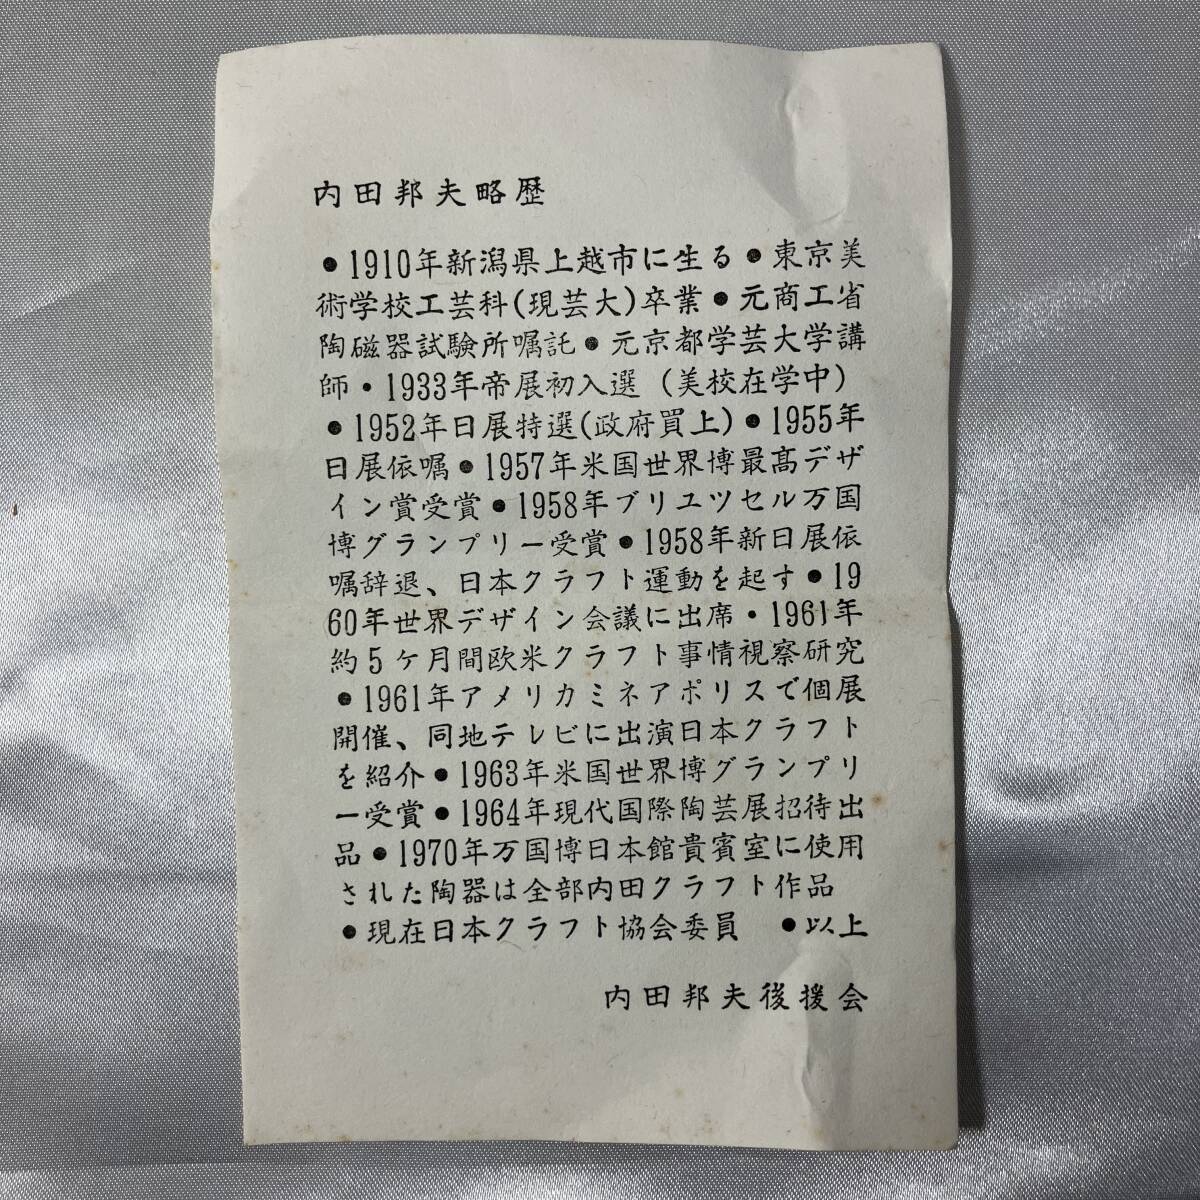 内田邦夫略歴
●1910年新潟県上越市に生る●東京美
術学校工芸科(現芸大)卒業●元商工省
陶磁器試験所嘱託●元京都学芸大学講
師・1933年帝展初入選(美校在学中)
●1952年日展特選(政府買上)●1955年
日展依嘱●1957年米国世界博最高デザ
イン賞受賞●1958年ブリユツセル万国
博グランプリー受賞●1958年新日展依
嘱辞退、日本クラフト運動を起す●19
60年世界デザイン会議に出席・1961年
約5ケ月間欧米クラフト事情視察研究
●1961年アメリカミネアポリスで個展
開催、同地テレビに出演日本クラフト
を紹介●1963年米国世界博グランプリ
ー受賞●1964年現代国際陶芸展招待出
品●1970年万国博日本館貴賓室に使用
された陶器は全部内田クラフト作品
●現在日本クラフト協会委員　●以上
内田邦夫後援会